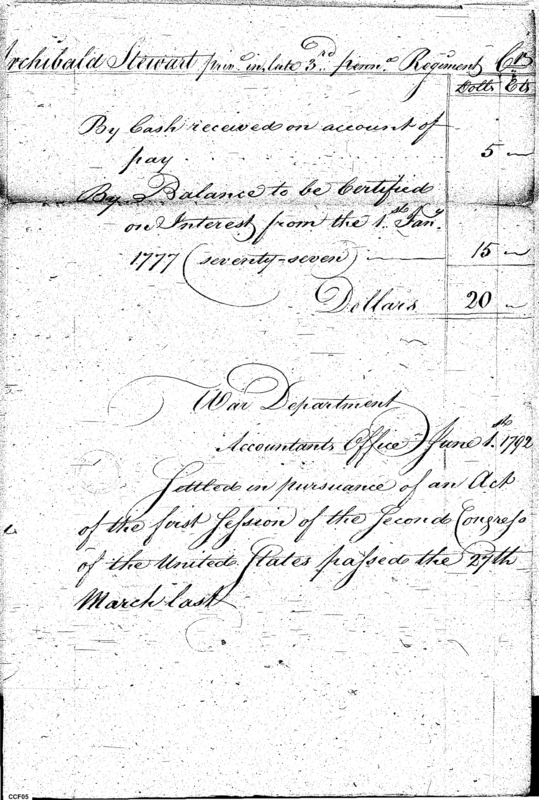 Archibald Stewart priv.^e in late 3.^rd penn.^a Regiment Cr.
Dolls Cts
By Cash received on account of
pay 5 —
By Balance to be Certified
on Interest from the 1.^st Jan.^y
1777 (seventy-seven) — 15 —
Dollars 20 —
War Department
Accountants Office June 1.^st 1792
Settled in pursuance of an Act
of the first Session of the Second Congress
of the United States passed the 27th
March last
CCF05